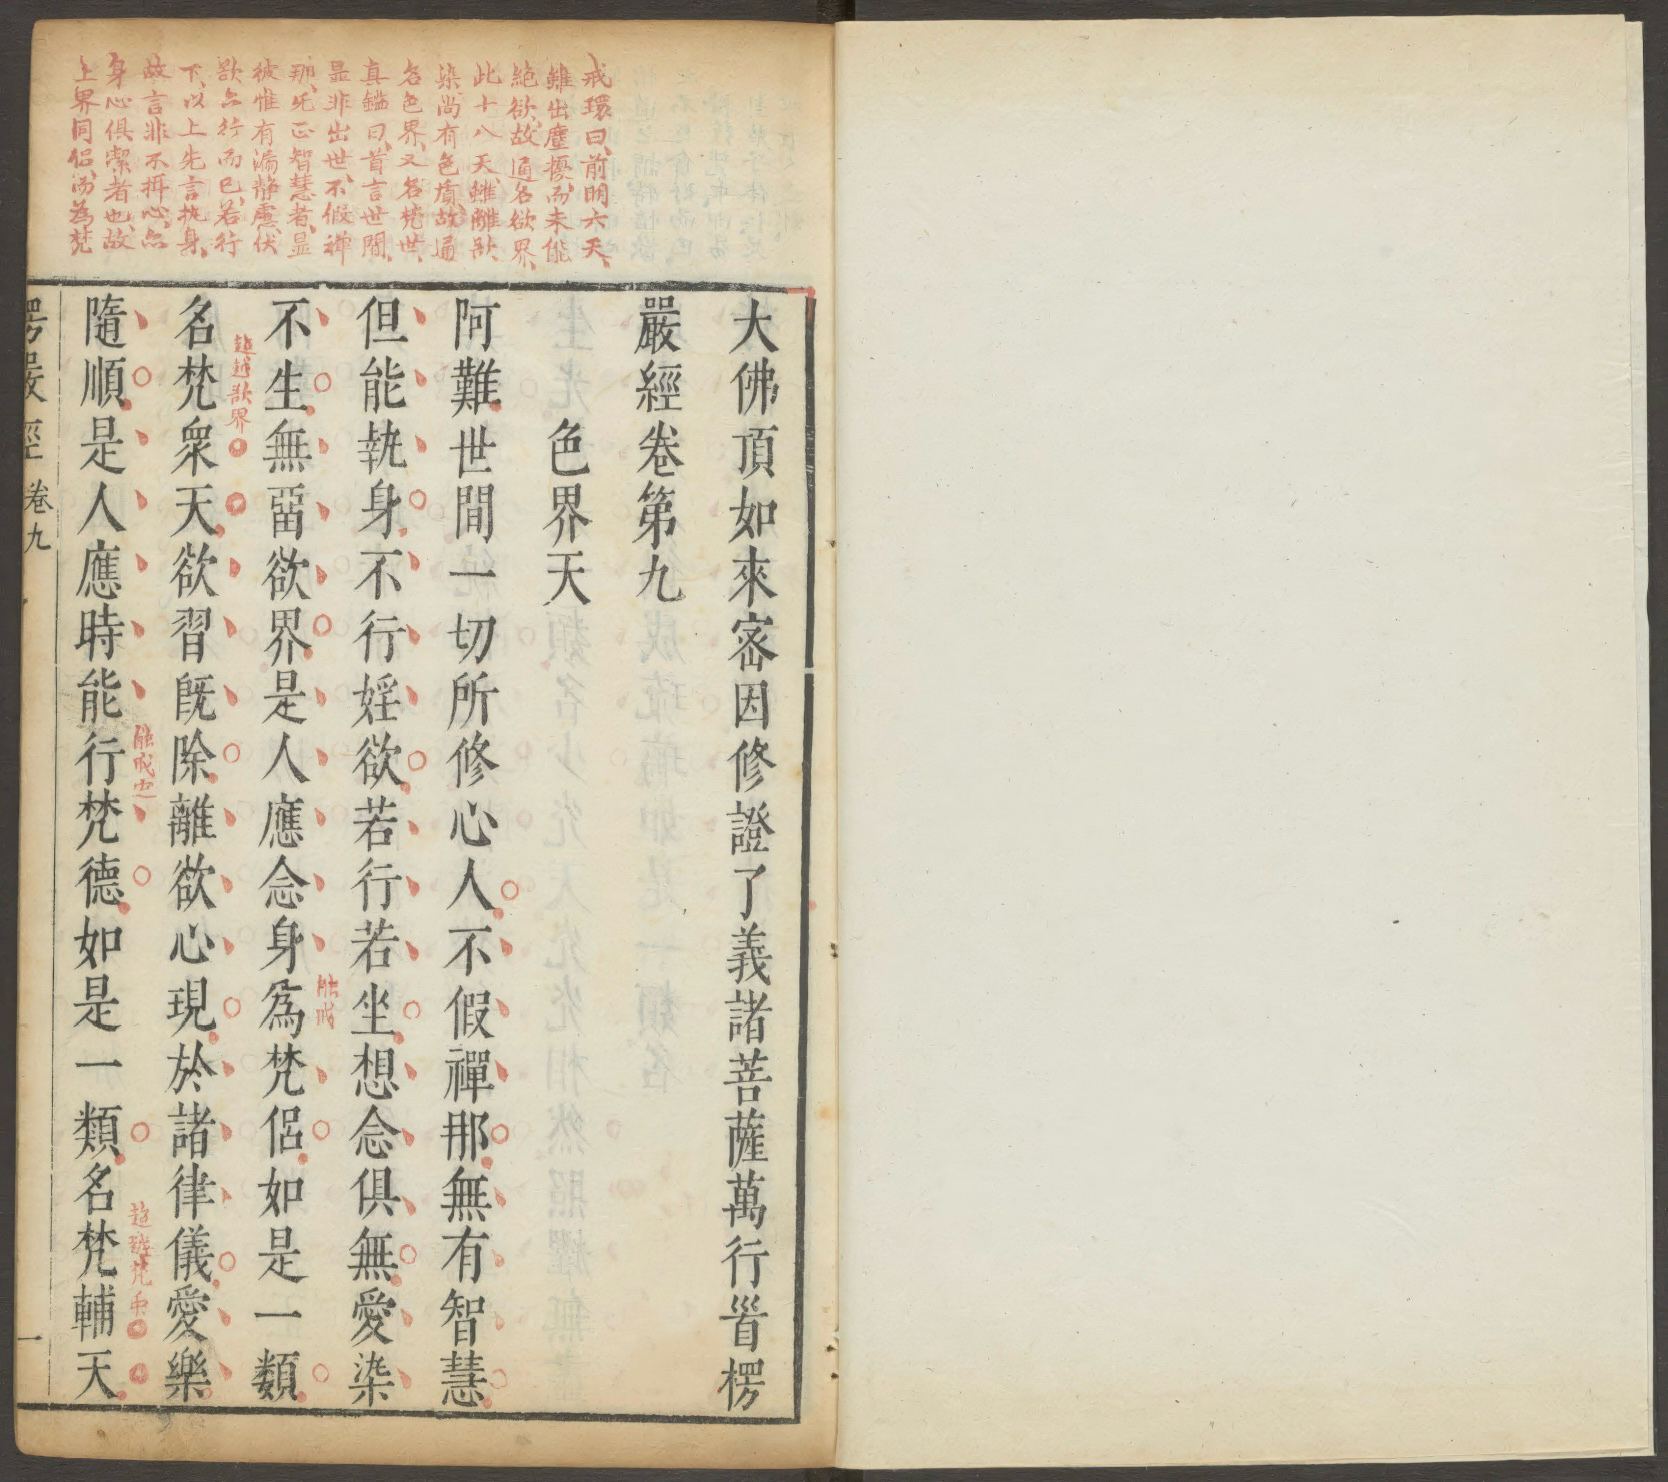 戒環曰、前明六天、
雖出塵擾、而未能
絶欲、故通名欲界、
此十八天、雖離欲
染、尚有色質、故通
名色界、又名梵世、
真鑑曰、首言世間、
显非出世、不假禅
那、无正智慧者、显
彼惟有漏静慮、伏
欲界行而已、若行
下、以上先言执身、
故言非不捋心、
身心俱潔者也、故
上界同侶、而為梵
大佛頂如來宻因修證了義諸菩薩萬行首楞
嚴經卷第九
色界天
阿難世間一切所修心人不假禪那無有智慧
但能執身不行婬欲若行若坐想念俱無愛染
不生無畱欲界是人應念身爲梵侶如是一類
名梵衆天欲習旣除離欲心現於諸律儀愛樂
隨順是人應時能行梵德如是一類名梵輔天
超越欲界
能戒
能戒也
超越梵衆
楞嚴經 卷九
一